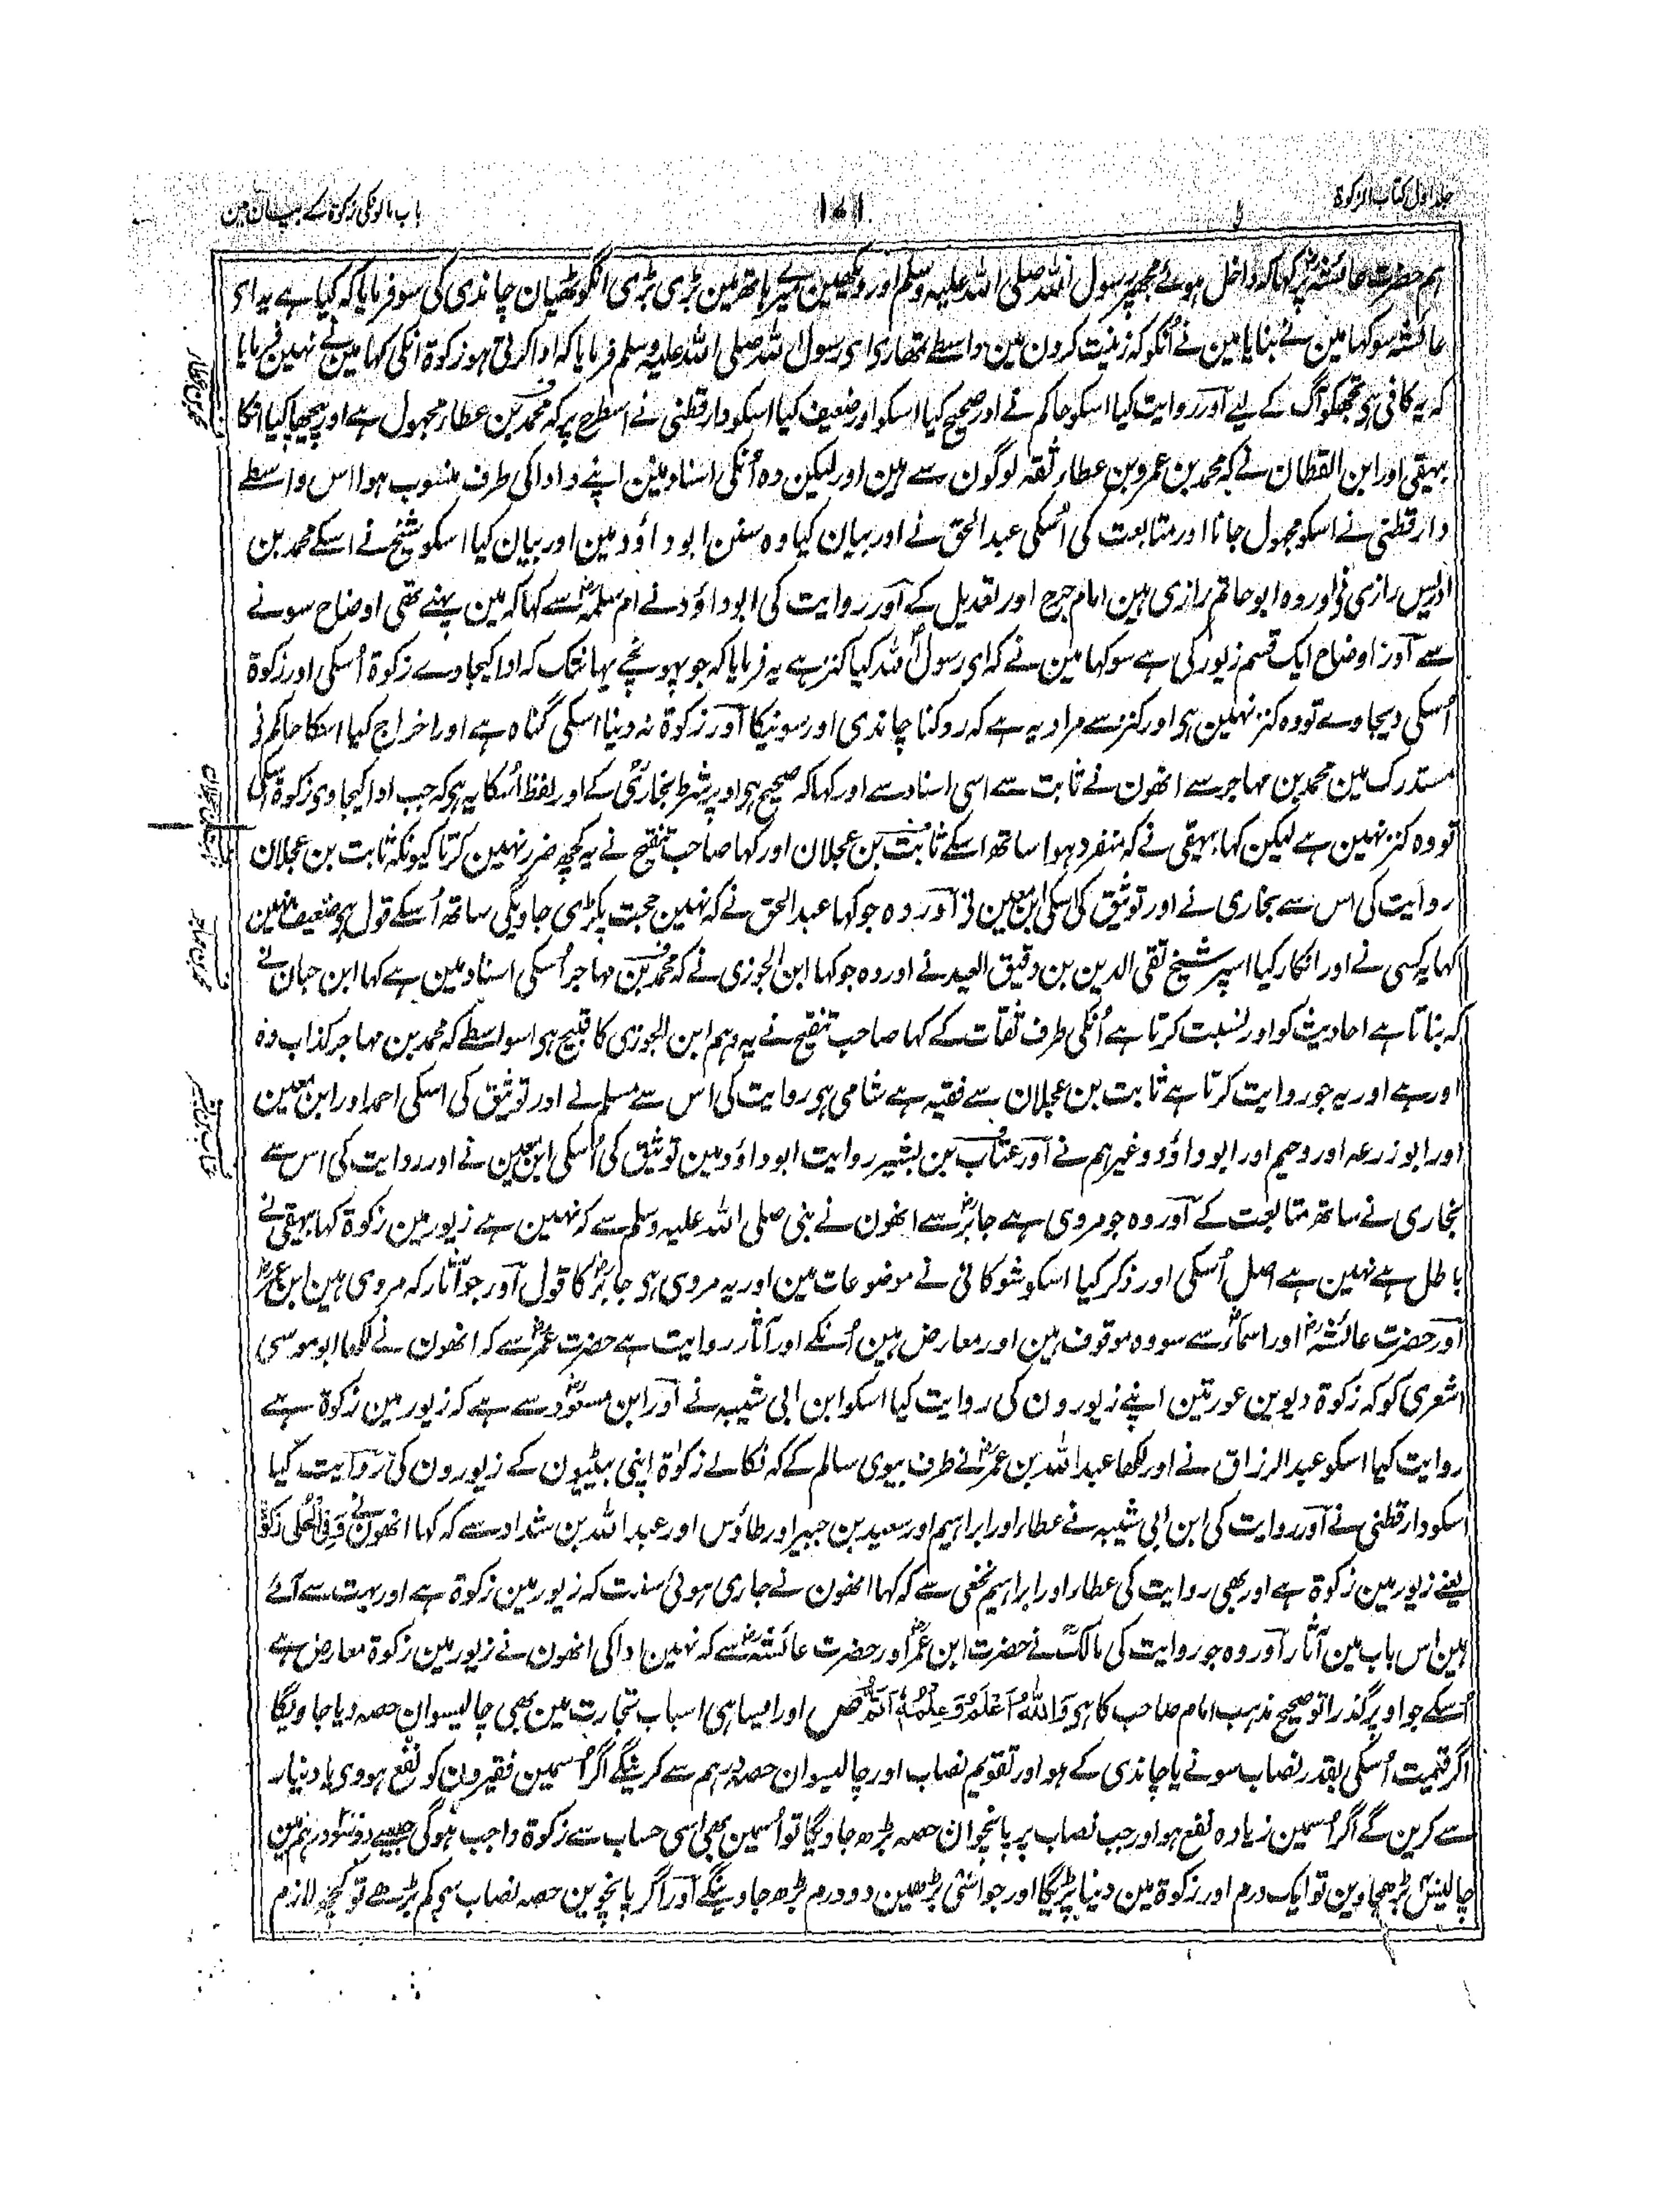 جلد اول کتاب الزکوۃ
۱۷۱
باب مالونکی زکوۃ کے بیان مین
ہم حضرت عائشہؓ پر کہا کہ داخل ہوئے مجھپر رسول اللہ صلی اللہ علیہ وسلم اور دیکھین میرے ہاتھ مین بڑی بڑی انگوٹھیان چاندی کی سو فرمایا کہ کیا ہے یہ ای
عائشہ سو کہا مین نے بنایا مین نے اُنکو کہ زینت کرون مین واسطے تمھاری ای رسول اللہ صلی اللہ علیہ وسلم فرمایا کہ ادا کرتی ہو زکوۃ انکی کہا مین نے نہین فرمایا
کہ یہ کافی ہی تجھکو آگ کے لیے اور روایت کیا اسکو حاکم نے اور صحیح کیا اسکو اور ضعیف کیا اسکو دارقطنی نے اسطرح پر کہ محمد بن عطار مجہول ہے اور پیچھا کیا انکا
بیہقی اور ابن القطان نے کہ محمد بن عمرو بن عطار ثقہ لوگون سے ہین اور لیکن وہ اُنکی اسناد مین اپنے دادا کی طرف منسوب ہوا اس واسطے
دارقطنی نے اسکو مجہول جانا اور متابعت کی اُسکی عبدالحق نے اور بیان کیا وہ سنن ابو داؤد مین اور بیان کیا اسکو شیخ نے اسکے محمد بن
ادریس رازی نی اور وہ ابو حاتم رازی ہین امام جرح اور تعدیل کے اور روایت کی ابو داؤد نے ام سلمہؓ سے کہا کہ مین پہنے تھی اوضاح سونے
سے اور اوضاح ایک قسم زیور کی ہے سو کہا مین نے کہ ای رسول اللہ کیا کنز ہے یہ فرمایا کہ جو پہونچے یہانتک کہ ادا کیجاوے زکوۃ اُسکی اور زکوۃ
اُسکی دیجاوے تو وہ کنز نہین ہی اور کنز سے مراد یہ ہے کہ روکنا چاندی اور سونیکا اور زکوۃ نہ دینا اسکی گناہ ہے اور اخراج کیا اسکا حاکم نی
مستدرک مین محمد بن مہاجر سے انھون نے ثابت سے اسی اسناد سے اور کہا کہ صحیح ہی اوپر شرط بخاری کے اور لفظ اُسکا یہ ہی کہ جب ادا کیجاوی زکوۃ اسکی
تو وہ کنز نہین ہے لیکن کہا بیہقی نے کہ منفرد ہوا ساتھ اسکے ثابت بن عجلان اور کہا صاحب تنقیح نے یہ کچھ ضرر نہین کرتا کیونکہ ثابت بن عجلان
روایت کی اس سے بخاری نے اور توثیق کی اسکی ابن معین نے اور وہ جو کہا عبدالحق نے کہ نہین حجت پکڑی جاویگی ساتھ اُسکے قول ہی ضعیف نہین
کہا یہ کسی نے اور انکار کیا اسپر شیخ تقی الدین بن دقیق العید نے اور وہ جو کہا ابن الجوزی نے کہ محمد بن مہاجر اُسکی اسناد مین ہے کہا ابن حبان نے
کہ بناتا ہے احادیث کو اور نسبت کرتا ہے اُنکی طرف ثقات کے کہا صاحب تنقیح نے یہ وہم ابن الجوزی کا قبیح ہی اسواسطے کہ محمد بن مہاجر کذاب وہ
اور ہے اور یہ جو روایت کرتا ہے ثابت بن عجلان سے فقیہ ہے شامی ہی روایت کی اس سے مسلم نے اور توثیق کی اسکی احمد اور ابن معین
اور ابو زرعہ اور دحیم اور ابو داؤد وغیرہم نے اور عتاب بن بشیر روایت ابو داؤد مین توثیق کی اُسکی ابن معین نے اور روایت کی اس سے
بخاری نے ساتھ متابعت کے اور وہ جو مروی ہے جابرؓ سے انھون نے نبی صلی اللہ علیہ وسلم سے کہ نہین ہے زیور مین زکوۃ کہا بیہقی نے
باطل ہے نہین ہے اصل اُسکی اور ذکر کیا اسکو شوکانی نے موضوعات مین اور یہ مروی ہی جابرؓ کا قول اور جو آثار کہ مروی ہین ابن عمرؓ
اور حضرت عائشہؓ اور اسماءؓ سے سو وہ موقوف ہین اور معارض ہین اُنکے اور آثار روایت ہے حضرت عمرؓ سے کہ انھون نے لکھا ابو موسی
اشعری کو کہ زکوۃ دیوین عورتین اپنے زیورون کی روایت کیا اسکو ابن ابی شیبہ نے اور ابن مسعودؓ سے ہے کہ زیور مین زکوۃ ہے
روایت کیا اسکو عبدالرزاق نے اور لکھا عبداللہ بن عمرؓ نے طرف بیوی سالم کے کہ نکالے زکوٰۃ اپنی بیٹیون کے زیورون کی روایت کیا
اسکو دارقطنی نے اور روایت کی ابن ابی شیبہ نے عطار اور ابراہیم اور سعید بن جبیر اور طاؤس اور عبداللہ بن شداد سے کہ کہا انھون نے فِی الْحُلِی زَکٰوۃٌ
یعنے زیور مین زکوۃ ہے اور بھی روایت کی عطار اور ابراہیم نخعی سے کہ کہا انھون نے جاری ہوئی سنت کہ زیور مین زکوۃ ہے اور بہت سے آئے
ہین اس باب مین آثار اور وہ جو روایت کی مالک نے حضرت ابن عمرؓ اور حضرت عائشہؓ سے کہ نہین ادا کی انھون نے زیور مین زکوۃ معارض ہے
اُسکے جو اوپر گذرا تو صحیح مذہب امام صاحب کا ہی وَاللّٰہُ اَعْلَمُ وَعِلْمُہٗ اَتَمُّ ص اور ایسا ہی اسباب تجارت مین بھی چالیسوان حصہ دیا جاویگا
اگر قیمت اُسکی بقدر نصاب سونے یا چاندی کے ہو اور تقویم نصاب اور چالیسوان حصہ درہم سے کرینگے اگر اُسمین فقیرون کو نفع ہووی یا دینار
سے کرین گے اگر اُسمین زیادہ نفع ہو اور جب نصاب پر پانچوان حصہ بڑھ جاویگا تو اُسمین بھی اسی حساب سے زکوۃ واجب ہوگی جیسے دو سَو درہم مین
چالیس بڑھ جاوین تو ایک درم اور زکوۃ مین دینا پڑیگا اور جو اسّی بڑھین دو درم بڑھ جاوینگے اور اگر پانچوین حصہ نصاب سے کم بڑھے تو کچھ لازم